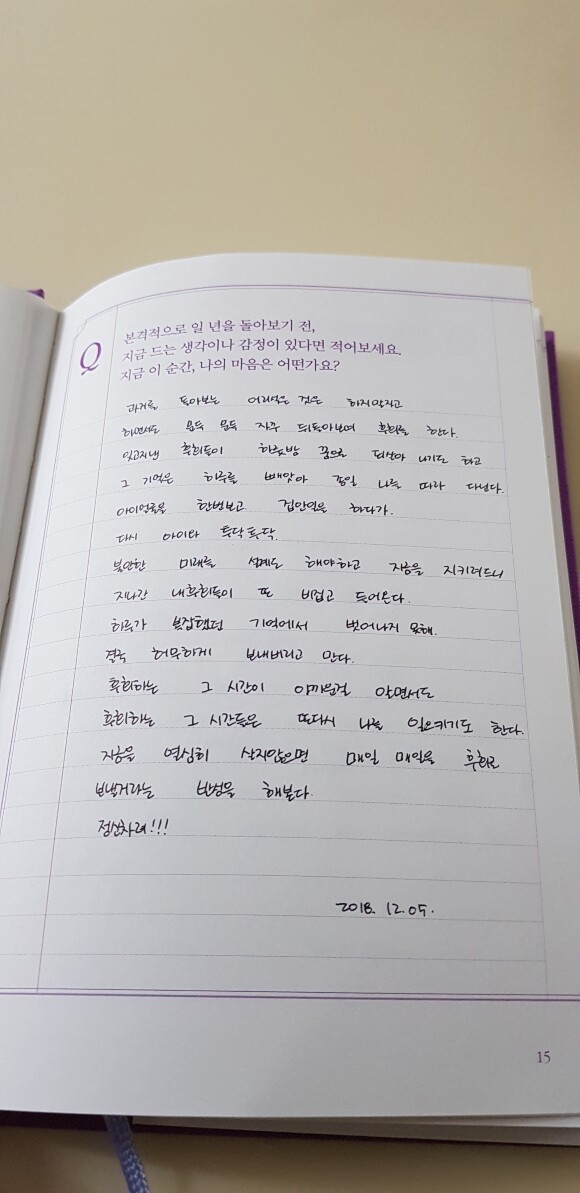 Q
본격적으로 일 년을 돌아보기 전,
지금 드는 생각이나 감정이 있다면 적어보세요.
지금 이 순간, 나의 마음은 어떤가요?
과거를 돌아보는 어리석은 것은 하지말자고
하면서도 문득 문득 자주 되돌아보며 후회를 한다.
잊고지낸 후회들이 하룻밤 꿈으로 되살아 나기도 하고
그 기억은 하루를 빼앗아 종일 나를 따라 다닌다.
아이얼굴을 한번보고 집안일을 하다가.
다시 아이와 토닥토닥.
불안한 미래를 설계도 해야하고 지금을 지키려드니
지나간 내후회들이 또 비집고 들어온다.
하루가 복잡했던 기억에서 벗어나지 못해.
결국 허무하게 보내버리고 만다.
후회하는 그 시간이 아까운걸 알면서도
후회하는 그 시간들은 또다시 나를 일으키기도 한다.
지금을 열심히 살지않으면 매일 매일을 후회로
보낼거라는 반성을 해본다.
정신차려!!!
2018. 12. 05.
15